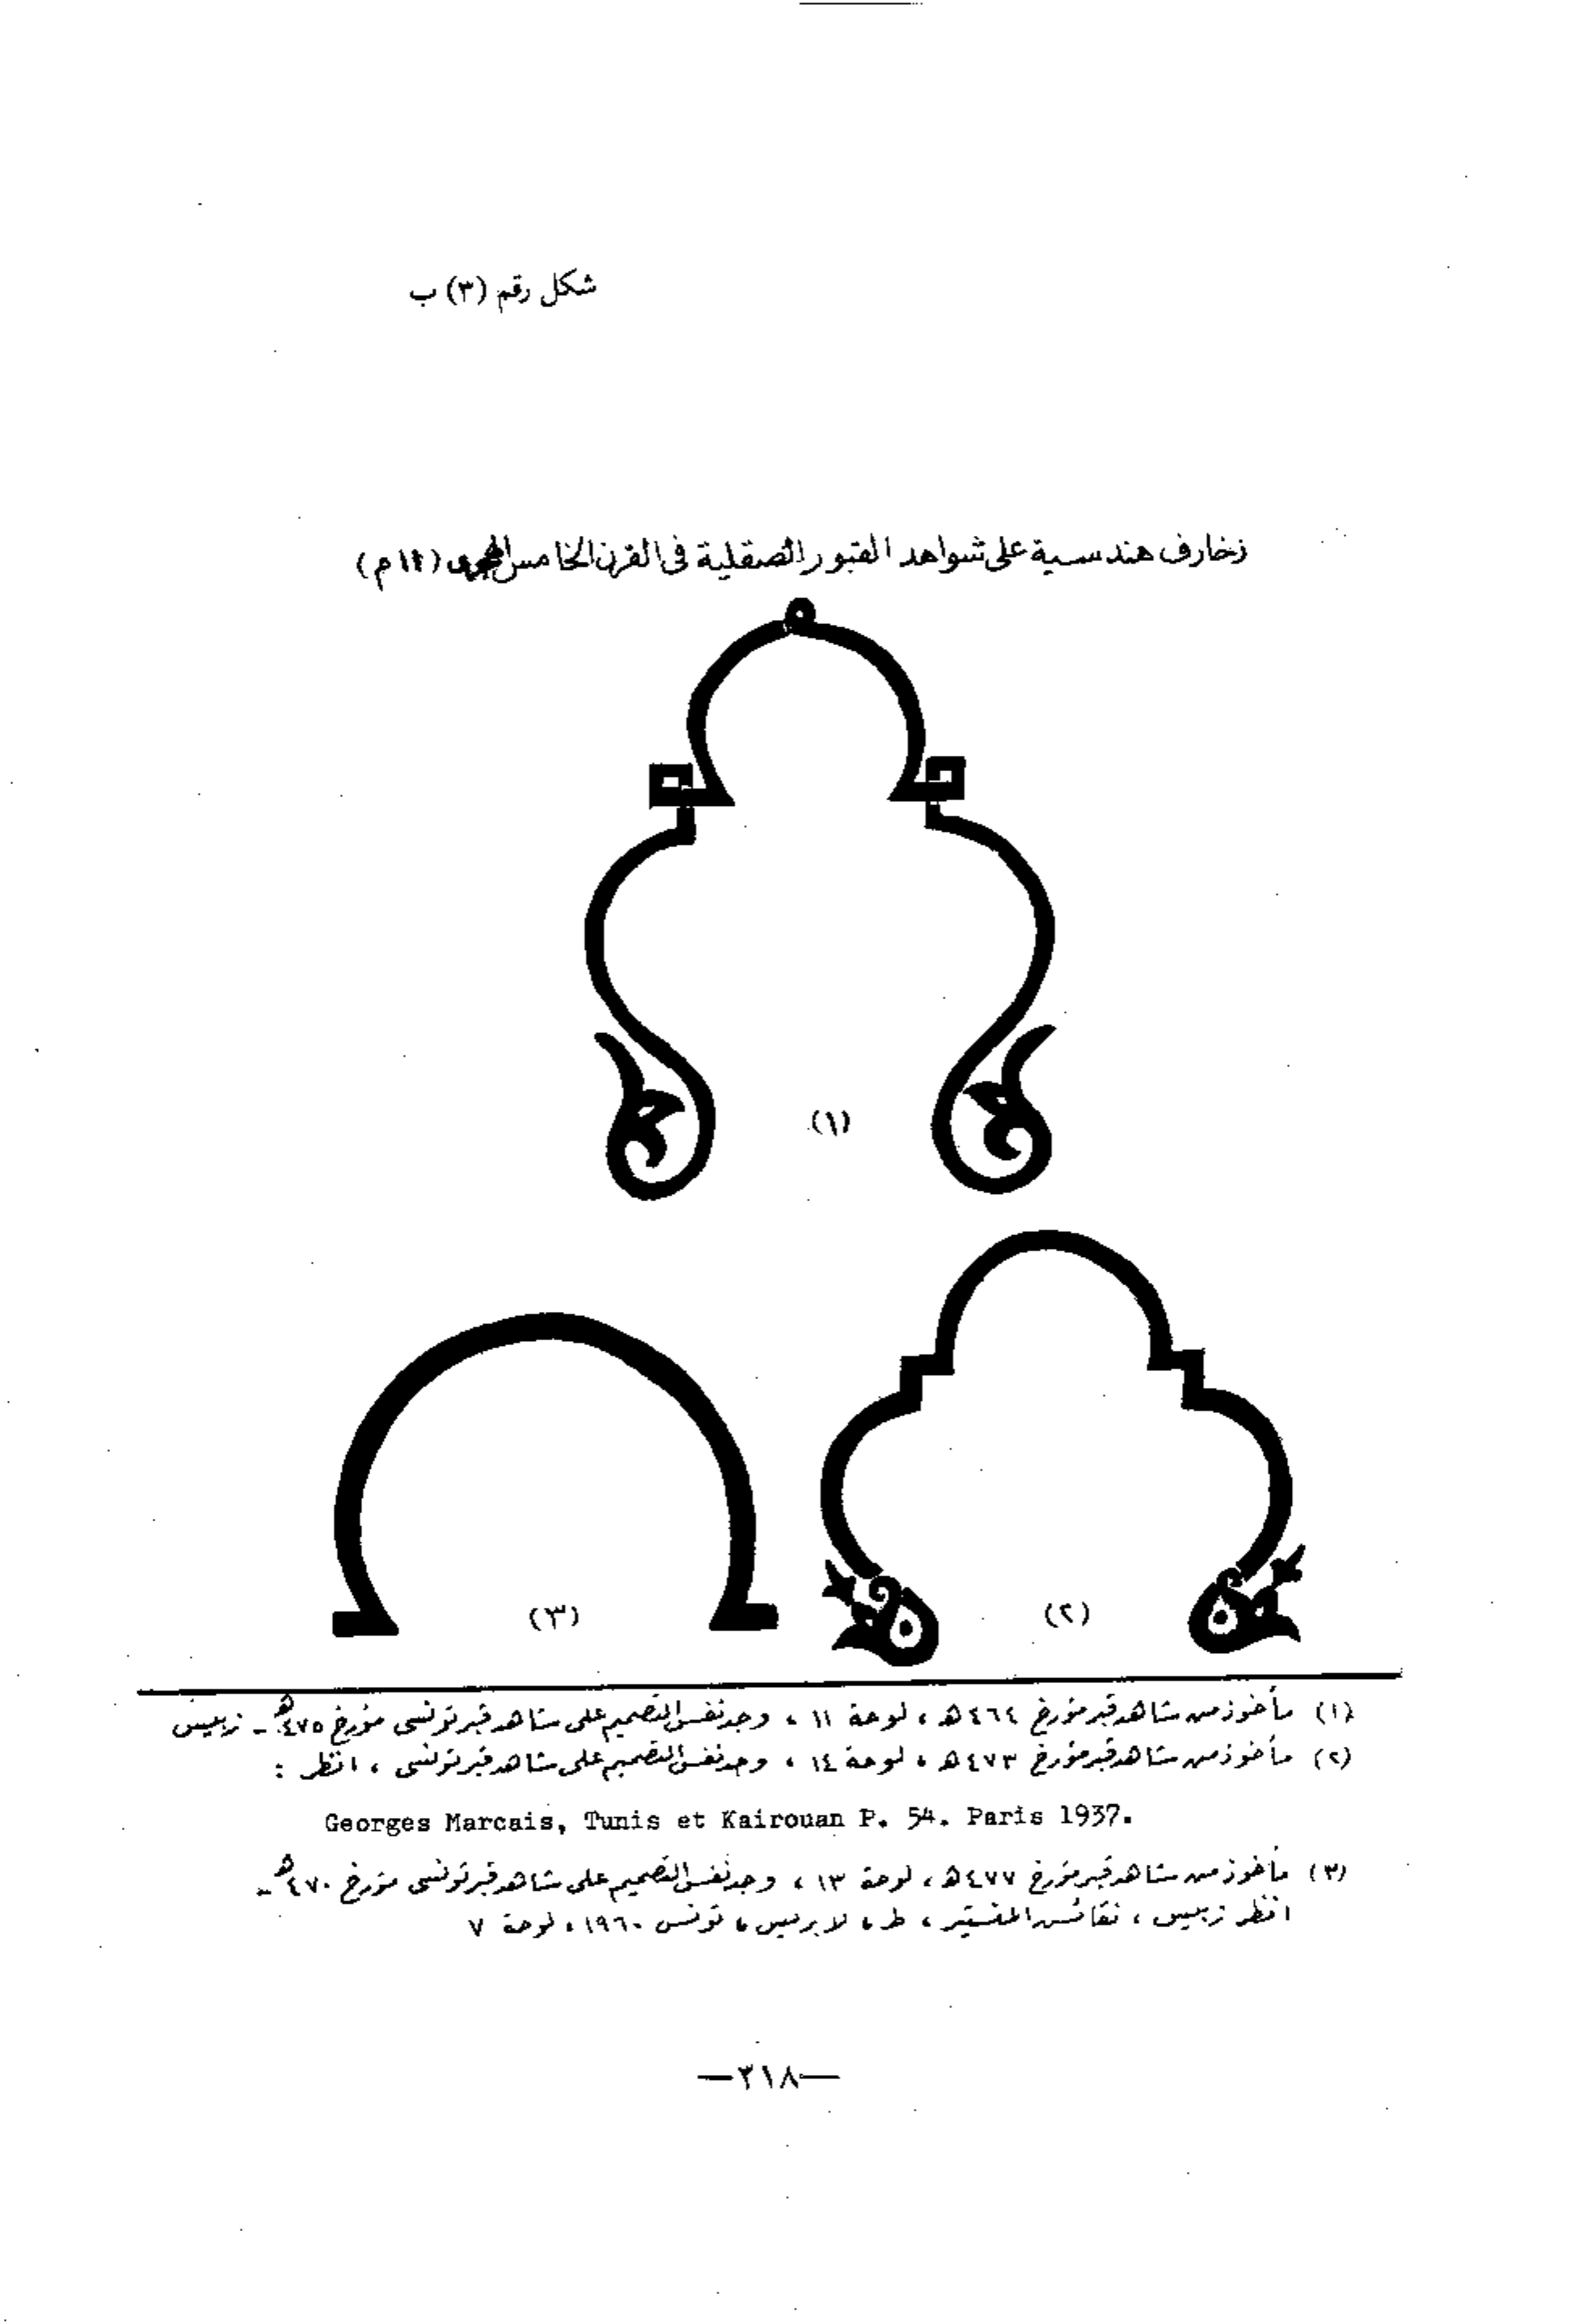 شكل رقم (٣) ب
زخارف هندسية على شواهد القبور الصقلية فى القرن الخامس الهجرى (١١ م)
(١)
(٢)
(٣)
(١) مأخوذ من شاهد قبر مؤرخ ٤٦٤ هـ ، لوحة ١١ ، وجد نفس التصميم على شاهد قبر تونسى مؤرخ ٤٧٥ هـ - زبيس
(٢) مأخوذ من شاهد قبر مؤرخ ٤٧٣ هـ ، لوحة ١٤ ، وجد نفس التصميم على شاهد قبر تونسى ، انظر :
Georges Marcais, Tunis et Kairouan P. 54. Paris 1937.
(٣) مأخوذ من شاهد قبر مؤرخ ٤٧٧ هـ ، لوحة ١٣ ، وجد نفس التصميم على شاهد قبر تونسى مؤرخ ٤٧٠ هـ -
انظر زبيس ، نقائش المنستير ، ط ، لابريس ، تونس ١٩٦٠ ، لوحة ٧
—٢١٨—